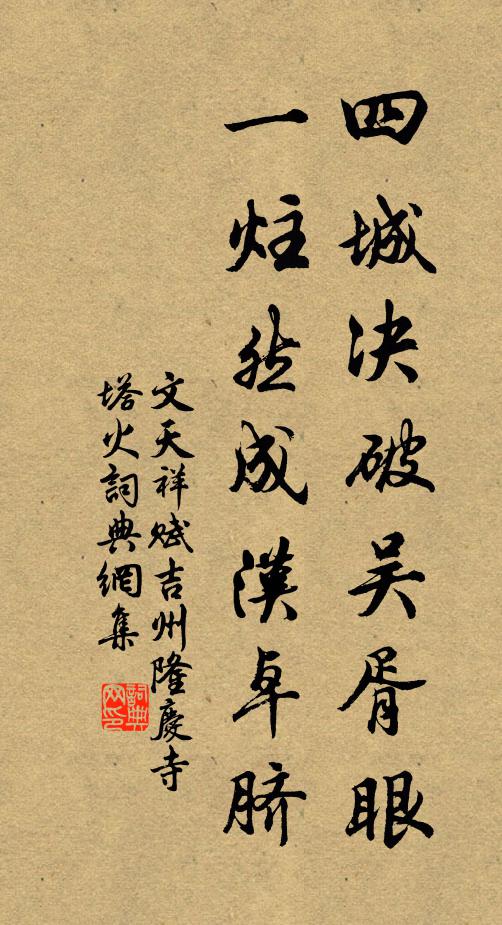 四城決破吴胥眼
一炷然成漢卓臍
文天祥賦吉州隆慶寺
塔火詞典網集
詞典
网印